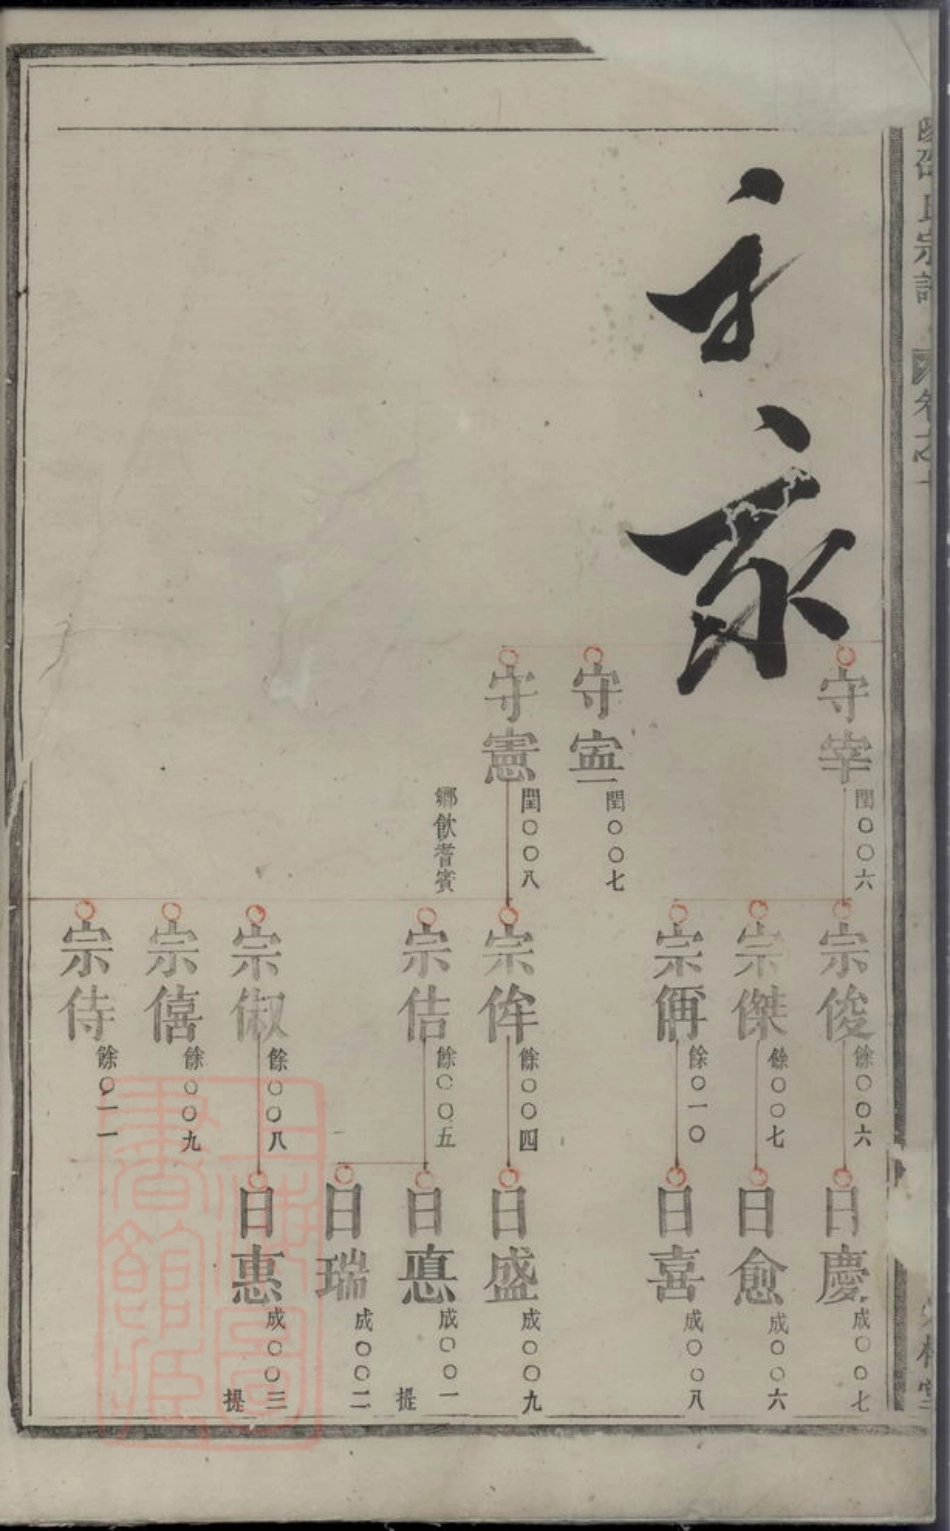 邵氏宗譜
卷之十
守宰
閏〇〇六
守寍
閏〇〇七
守憲
閏〇〇八
鄉飲耆賓
宗俊
餘〇〇六
宗傑
餘〇〇七
宗俑
餘〇一〇
宗侔
餘〇〇四
宗佶
餘〇〇五
宗俶
餘〇〇八
宗僖
餘〇〇九
宗侍
餘〇一一
日慶
成〇〇七
日愈
成〇〇六
日喜
成〇〇八
日盛
成〇〇九
日悳
成〇〇一
提
日瑞
成〇〇二
日惠
成〇〇三
提